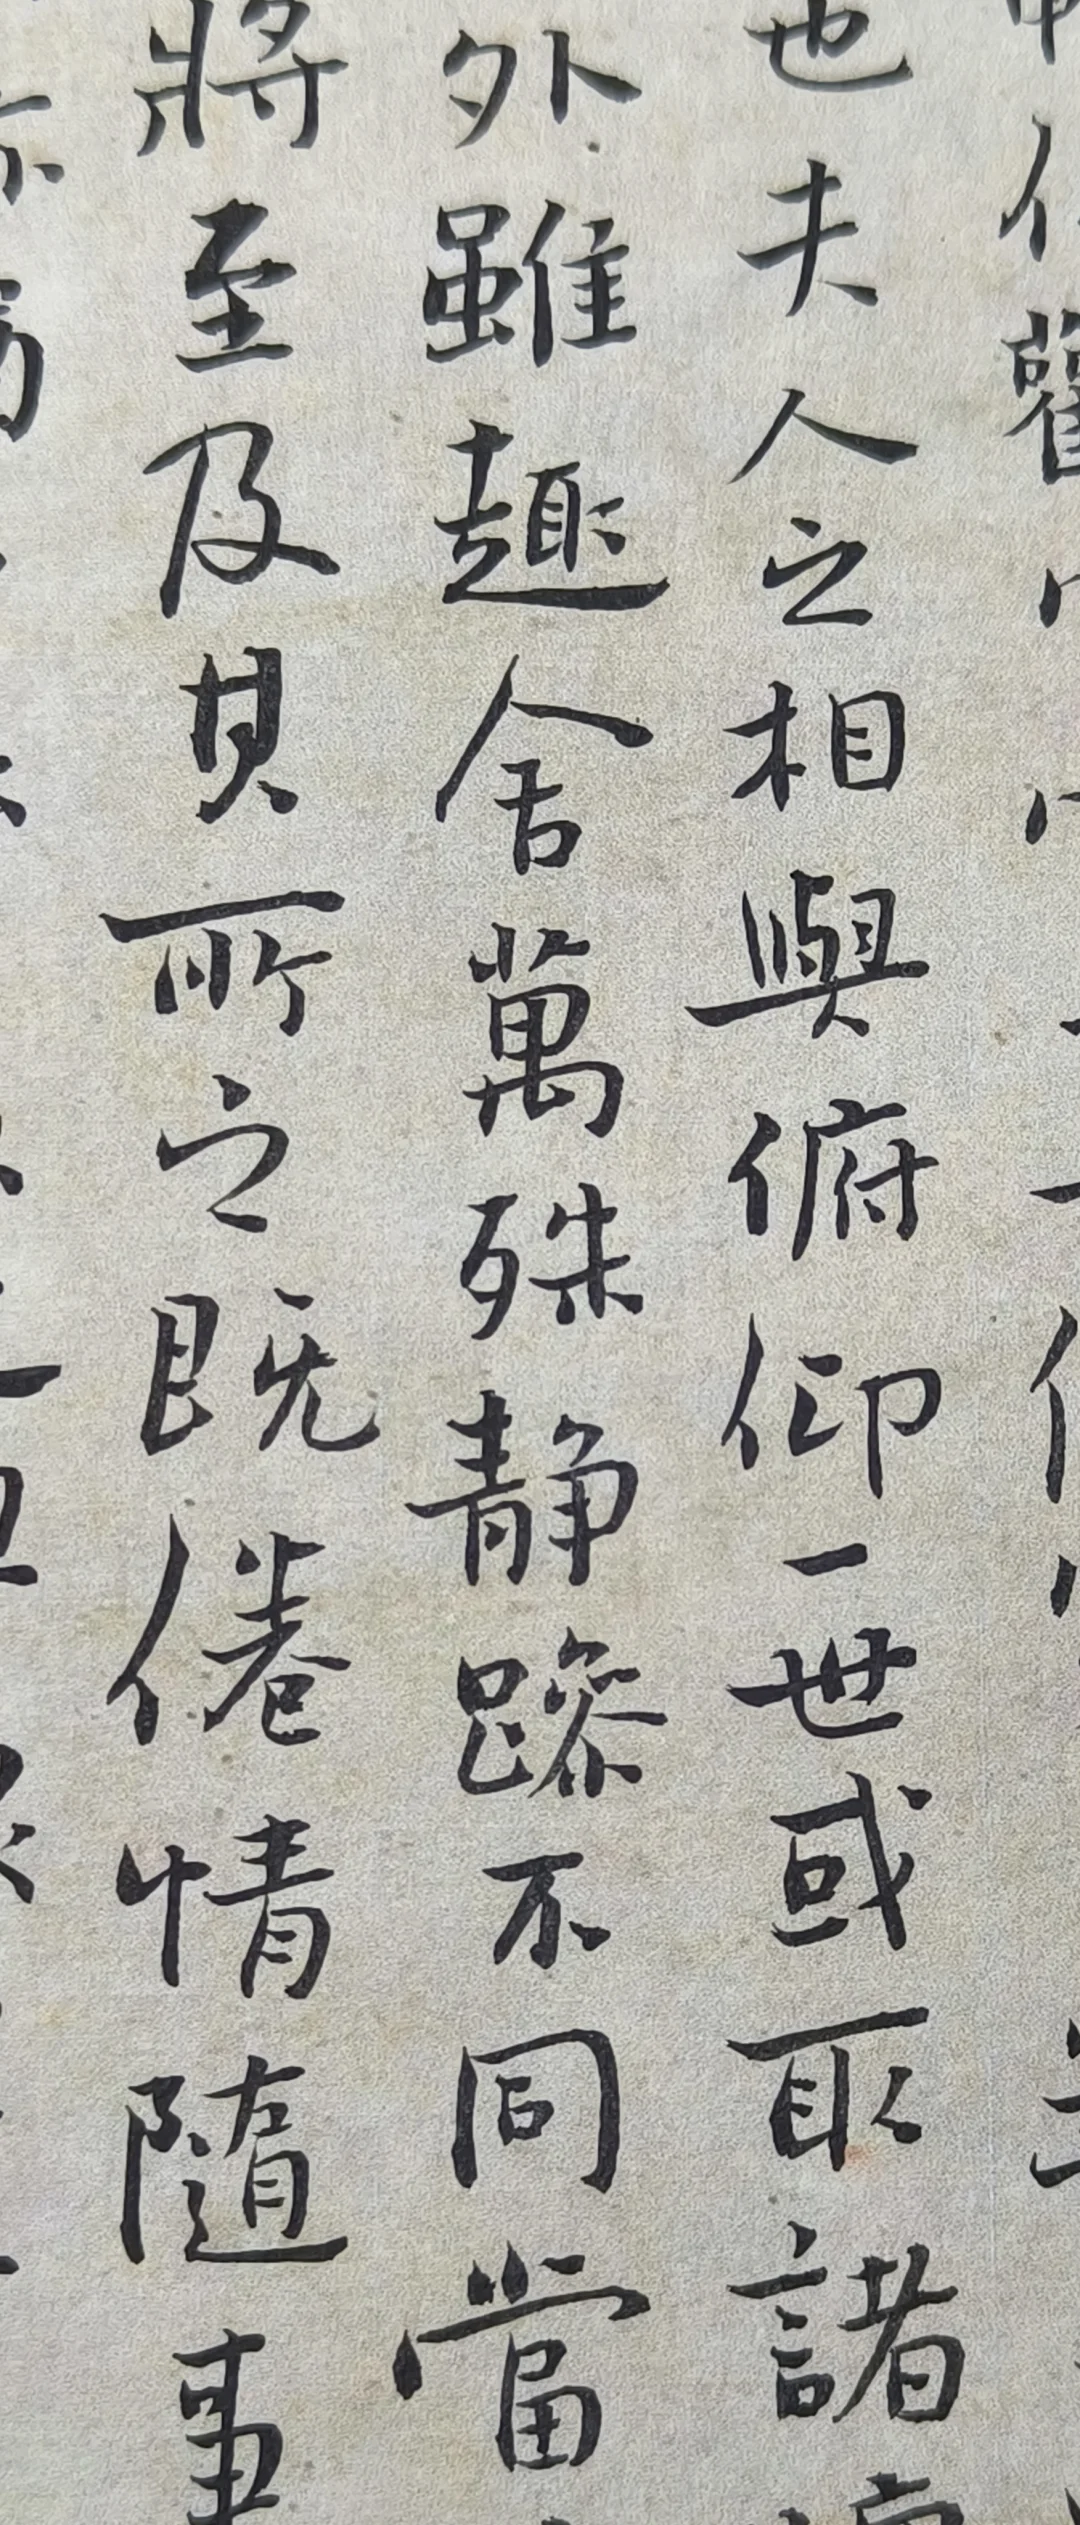 也夫人之相與俯仰一世或取諸
外雖趣舍萬殊静躁不同當
將至及其所之既倦情隨事